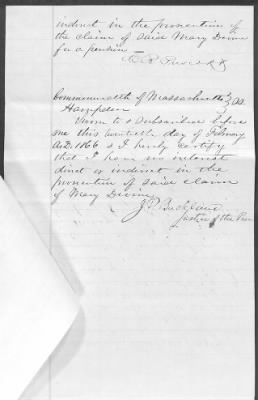 indirect in the prosecution of
the claim of said Mary Divine
for a pension —
Commonwealth of Massachusetts } SS.
Hampden
Sworn to & Subscribed before
me this twentieth day of February
A.D. 1866 & I hereby certify
that I have no interest
direct or indirect in the
prosecution of said claim
of Mary Divine
J. P. Buckland
Justice of the Peace